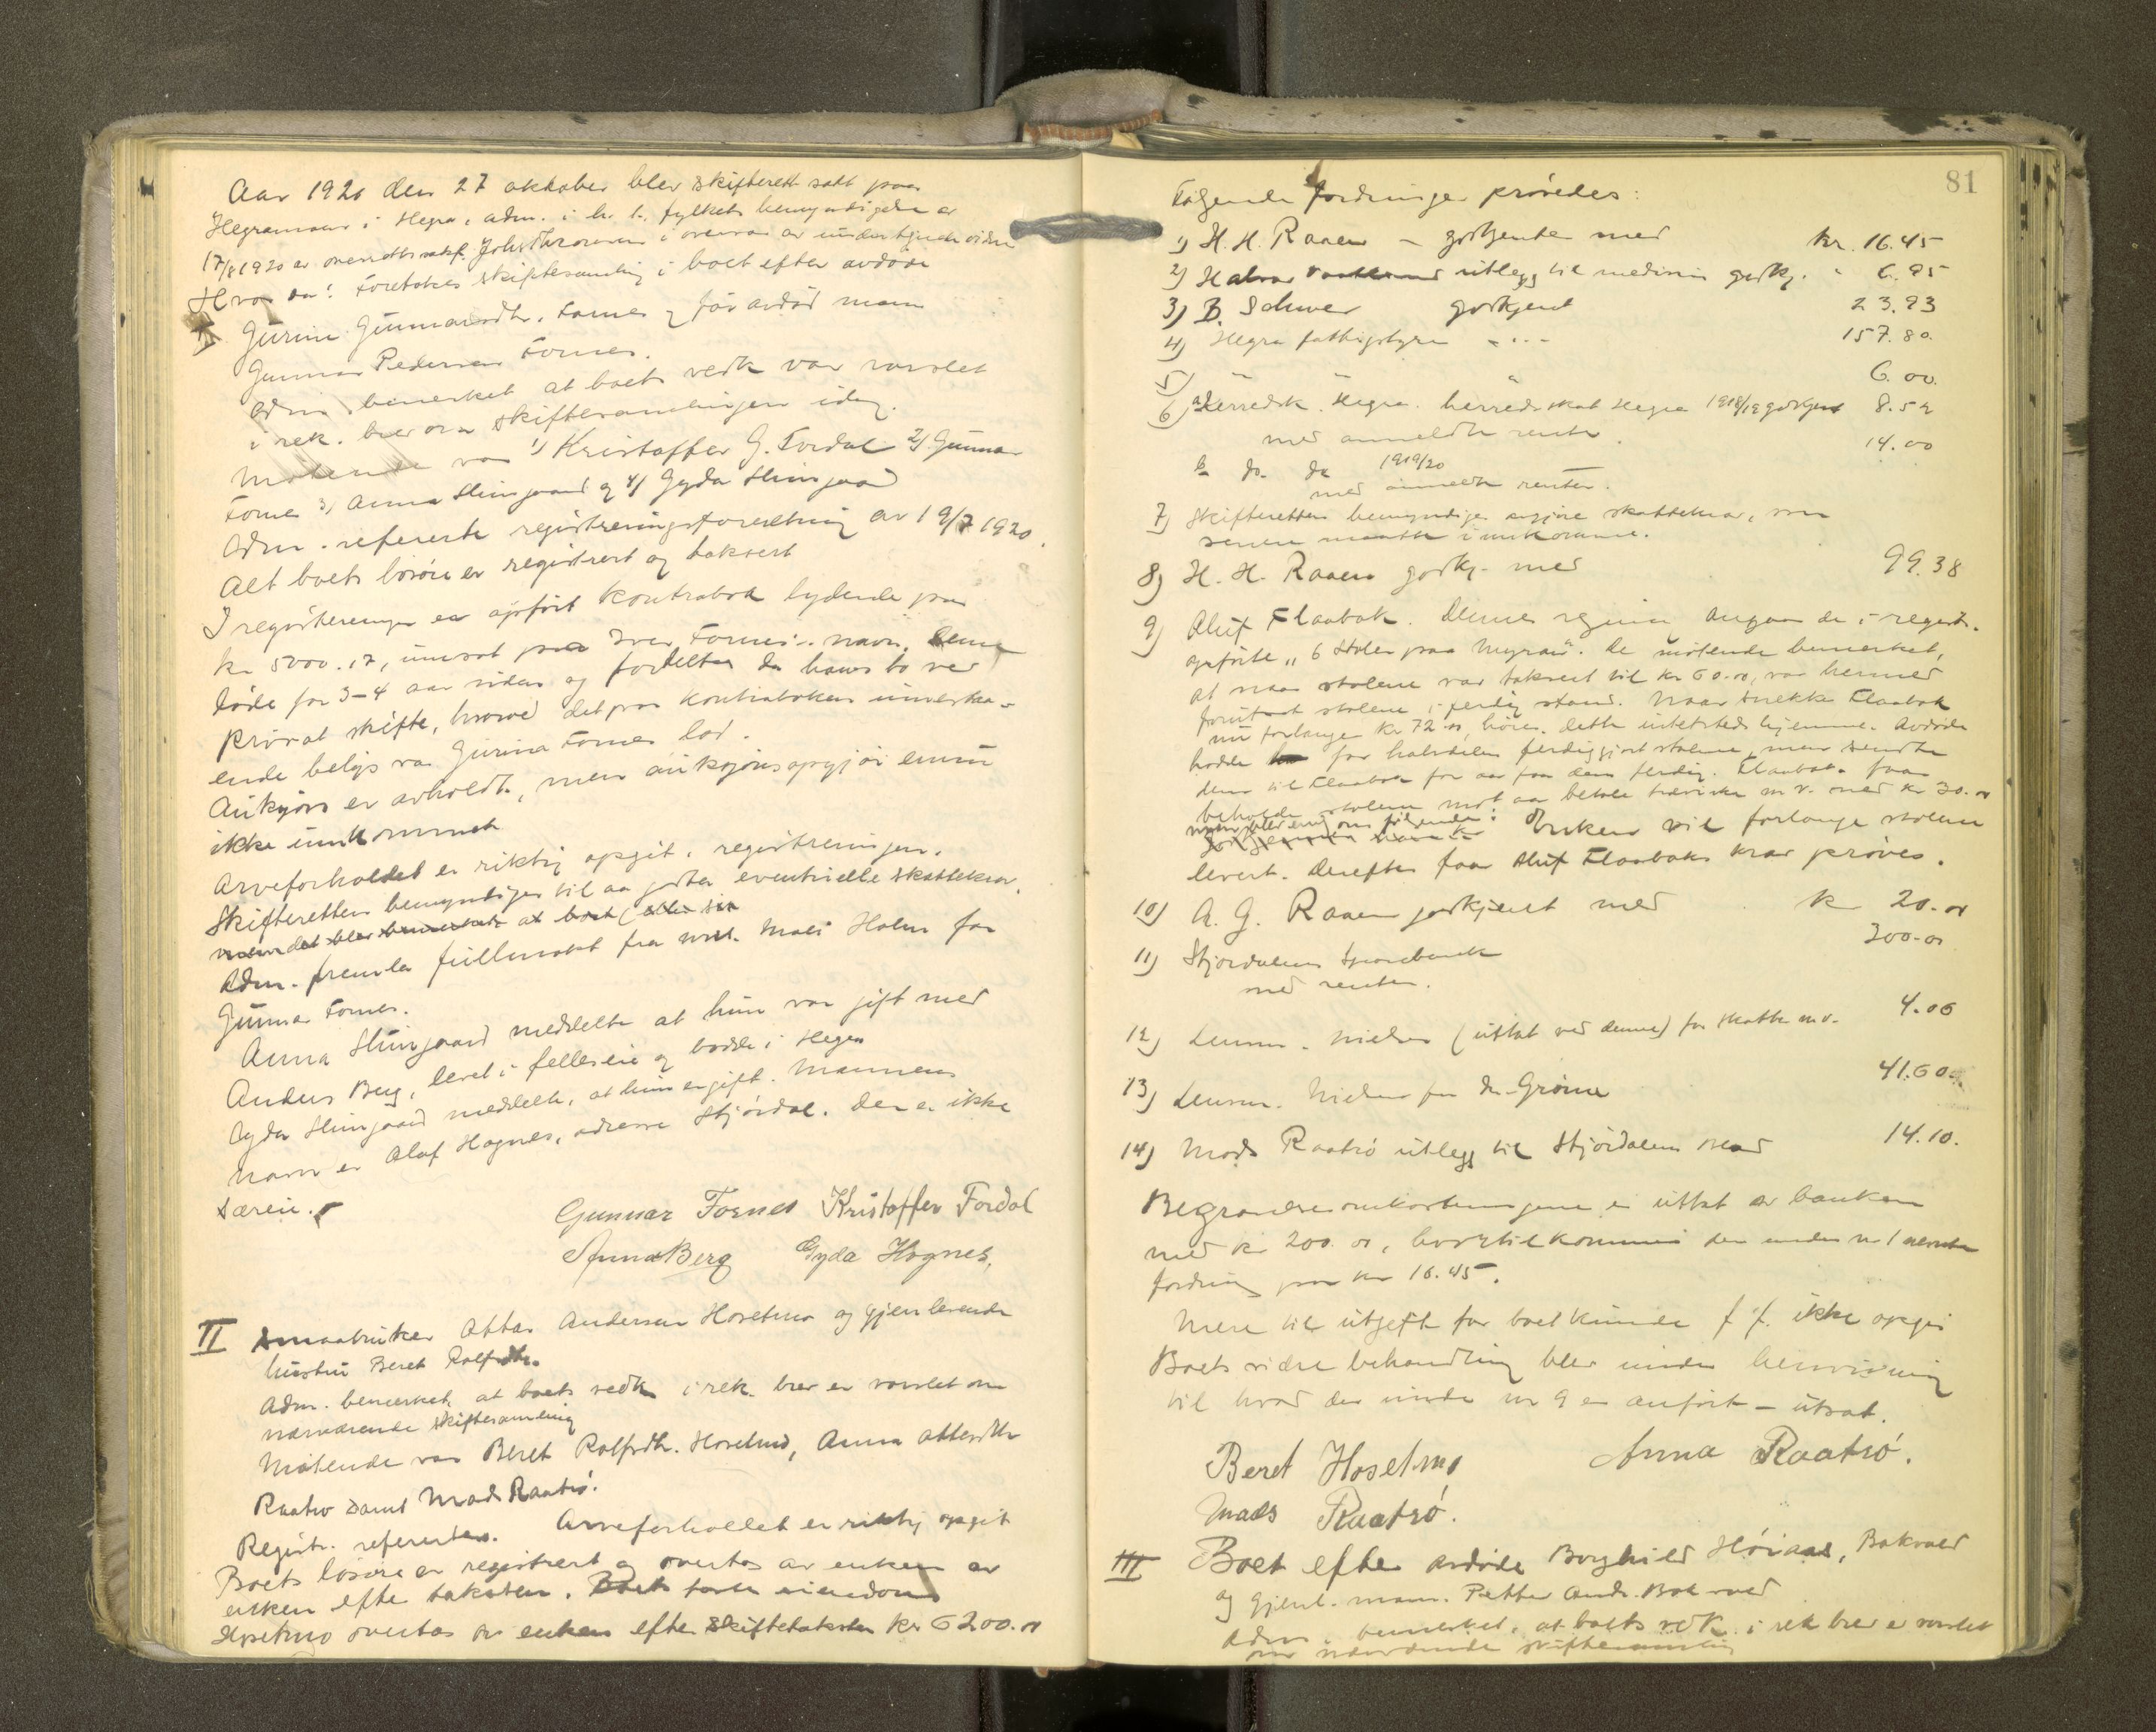 Aar 1920 den 27 oktober blev skifterett satt paa
Hegramoen i Hegra, adm. i h. t. fylkets bemyndigelse av
17/8 1920 av overrettssakf. Johs Thronsen i overvær av undertegnede vidner
Hvor da: Foretokes skiftesamling i boet efter avdøde
I. Gurine Gunnarsdtr. Fornes og før avdød mann
Gunnar Pedersen Fornes.
Adm bemerket at boets vedk var varslet
i rek. brev om skiftesamlingen idag.
Møtende var 1) Kristoffer G. Fordal 2) Gunnar
Fornes 3) Anna Slungaard og 4) Gyda Slungaard
Adm. refererte registreringsforretning av 19/7 1920.
Alt boets løsøre er registrert og taksert
I registreringen er opført kontrabok lydende paa
kr 5000.17, innsat paa Iver Fornes' navn. Denne
døde for 3-4 aar siden og fordeltes da hans bo ved
privat skifte, hvorved det paa kontraboken innestaa-
ende beløp var Gurina Fornes lod.
Auksjon er avholdt, men auksjonsopgjør ennu
ikke innkommet
Arveforholdet er riktig opgit i registreringen.
Skifteretten bemyndiges til aa godta eventuelle skattekrav.
men det blev bemerket at boet
Adm. fremla fullmakt fra Mali Holm for
Gunnar Fornes.
Anna Slungaard meddelte at hun var gift med
Anders Berg, levet i felleseie og bodde i Hegra
Gyda Slungaard meddelte, at hun er gift. Mannens
navn er Olaf Hognes, adresse Stjørdal. Der er ikke
særeie.
Gunnar Fornes Kristoffer Fordal
Anna Berg Gyda Hognes.
II Smaabruker Ottar Andersen Hoselmo og gjenlevende
hustru Beret Rolfsdtr.
Adm. bemerket, at boets vedk i rek. brev er varslet om
nærværende skiftesamling
Møtende var Beret Rolfsdtr. Hoselmo, Anna Ottersdtr
Raatrø samt Mads Raatrø.
Registr. refertes. Arveforholdet er riktig opgit
Boets løsøre er registrert og overtas av enken av
enken efter taksten. Boets faste eiendom
Hoselmo overtas av enken efter skiftetaksten kr 6200.00
81
Følgende fordringer prøvedes:
1) H. H. Raaen – godkjentes med kr. 16.45
2) Halvor utlegg til medisin godkj. " 6.95
3) B. Schwer godkjent 23.93
4) Hegra fattigstyre " " " 157.80.
5) " " " 6.00.
6) a Herredsk. Hegra. herredsskat Hegra 1918/19 godkjent 8.52
med anmeldte renter.
b do. do 1919/20 14.00
med anmeldte renter.
7) Skifteretten bemyndiges avgjøre skattekrav, som
senere maatte innkomme.
8) H. H. Raaen godkj. med 99.38
9) Oluf Flaabak. Dennes regning angaar de i registr.
opførte "6 stoler paa Myran". De møtende bemerket,
at naar stolene var taksert til kr 60.00, var hermed
forutsat stolene i ferdig stand. Naar snekker Flaabak
nu forlanger kr 72.00, hører dette intetsteds hjemme. Avdøde
hadde for halvdelen ferdiggjort stolene, men sendte
dem til Flaabak for aa faa dem ferdig. Flaabak faar
beholde stolene mot aa betale træverke m. v. med kr 30.00
man blev enig om følgende: Enken vil forlange stolene
levert. Derefter faar Oluf Flaabaks krav prøves.
10) A. G. Raaen godkjent med kr 20.00
11) Stjørdalens Sparebank 300.00
med renter.
12) Lensm. Nielsen (uttat ved denne) for skatte m.v. 4.06
13) Lensm. Nielsen for dr. Grønn 41.60.
14) Mads Raatrø utlegg til Stjørdalens blad 14.10.
Begravelsesomkostningene er uttat av banken
med kr 200.00, hvortil kommer den under nr 1 nevnte
fordring paa kr 16.45.
Mere til utgift for boet kunde f. t. ikke opgis
Boets videre behandling blev under henvisning
til hvad der under nr 9 er anført – utsat.
Beret Hoselmo Anna Raatrø.
Mads Raatrø.
III Boet efter avdøde Borghild Høiaas, Bakvold
og gjenl. mann. Petter Ands. Bakvold
Adm. bemerket, at boets vedk. i rek brev er varslet
om nærværende skiftesamling